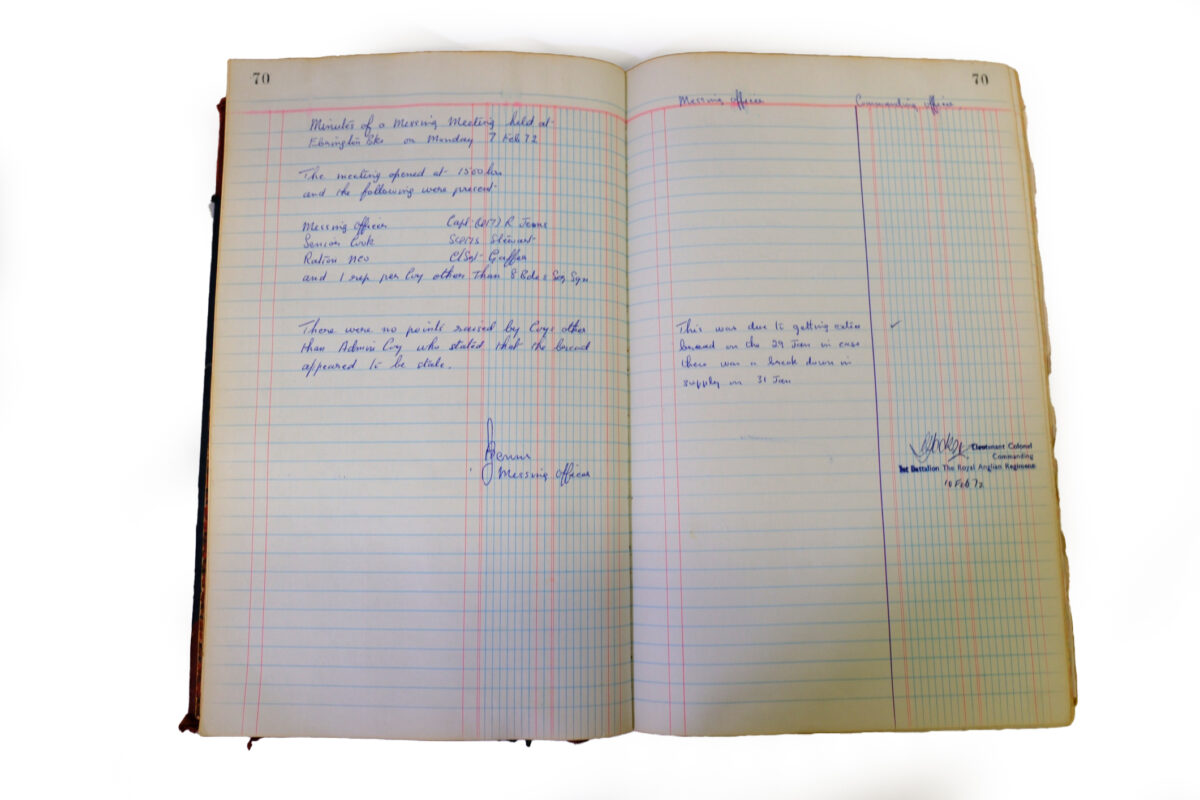 70
Minutes of a Messing Meeting held at
Ebrington Bks on Monday 7 Feb 72
The meeting opened at 1500 hrs
and the following were present
Messing Officer Capt (QM) R Jeans
Senior Cook SSgt Stewart
Ration NCO C/Sgt Gaffer
and 1 rep per Coy other than 8 Bde & Sig Sqn
There were no points raised by Coys other
than Admin Coy who stated that the bread
appeared to be stale.
Messing Officer
70
Messing Officer Commanding Officer
This was due to getting extra
bread on the 29 Jan in case
there was a break down in
supply on 31 Jan
Lieutenant Colonel
Commanding
1st Battalion The Royal Anglian Regiment
10 Feb 72